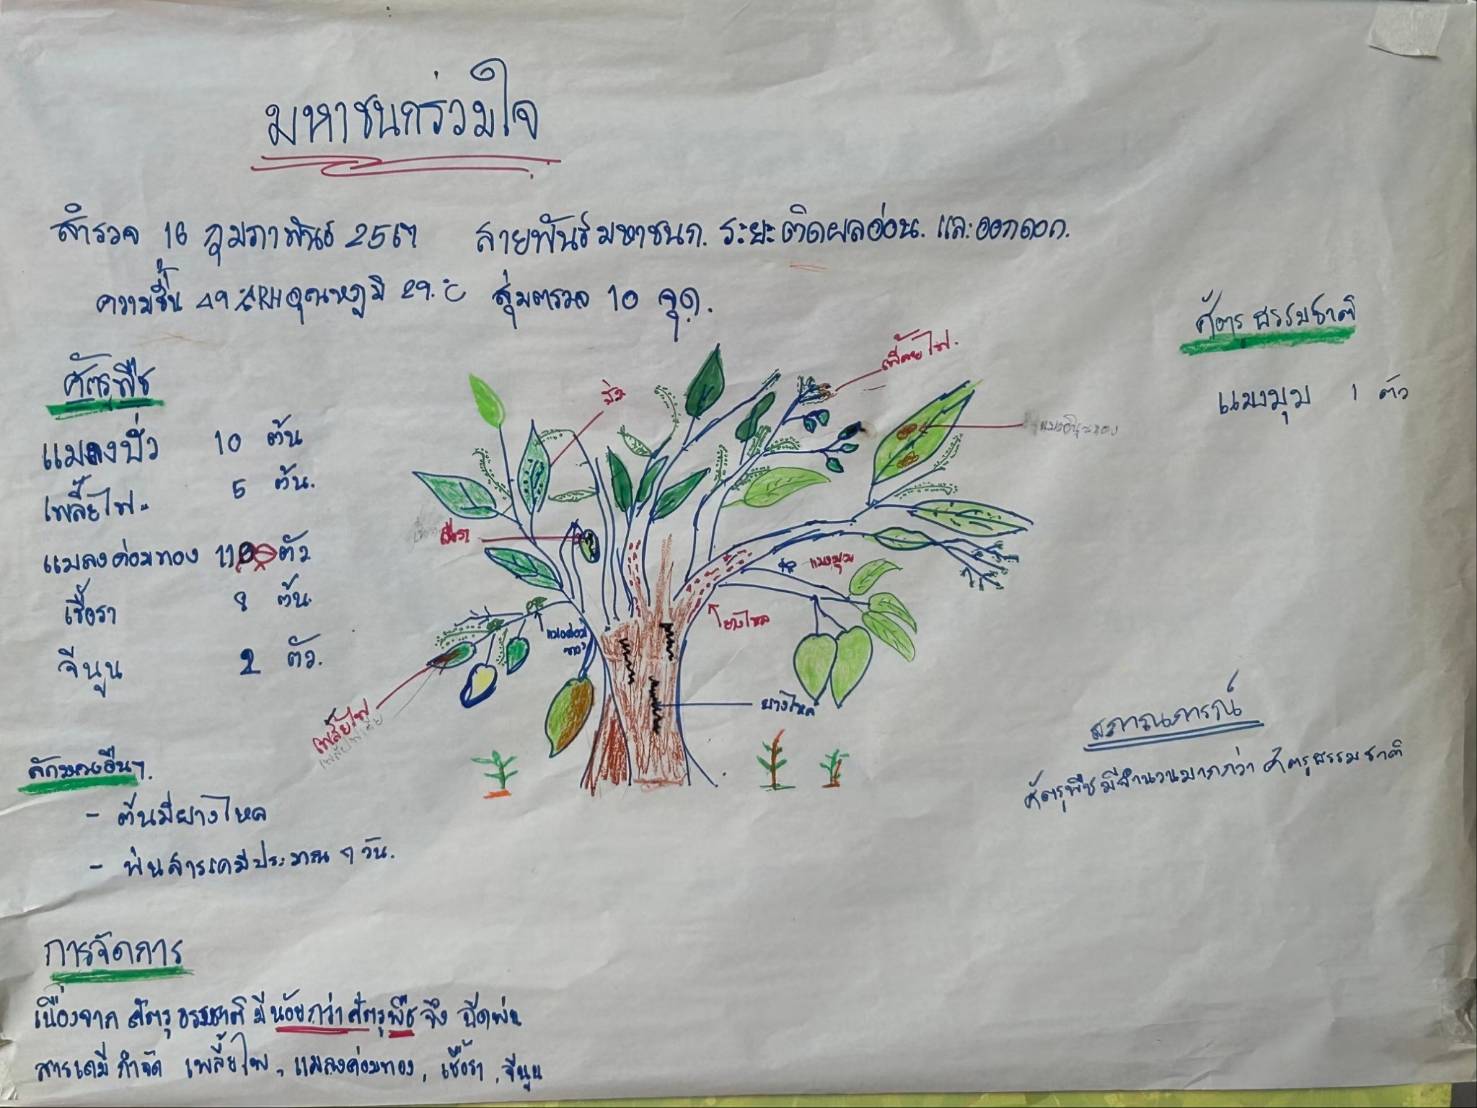 มหาชนกร่วมใจ
สำรวจ 16 กุมภาพันธ์ 2567 สายพันธ์มหาชนก. ระยะติดผลอ่อน. และออกดอก.
ความชื้น 49 %RH อุณหภูมิ 29 °C สุ่มตรวจ 10 จุด.
ศัตรูพืช
แมลงบั่ว 10 ต้น
เพลี้ยไฟ 5 ต้น.
แมลงค่อมทอง 110 ตัว
เชื้อรา 8 ต้น
จีนูน 2 ตัว.
ศัตรูธรรมชาติ
แมงมุม 1 ตัว
เพลี้ยไฟ
บั่ว
เชื้อรา
แมงมุม
ยางไหล
แมงค่อมทอง
เพลี้ยไฟ
ยางไหล
สภาณการณ์
ศัตรูพืชมีจำนวนมากกว่า ศัตรูธรรมชาติ
- ต้นมียางไหล
- พ่นสารเคมีประมาณ 7 วัน.
การจัดการ
เนื่องจาก ศัตรูธรรมชาติ มีน้อยกว่าศัตรูพืช จึง ฉีดพ่น
สารเคมี กำจัด เพลี้ยไฟ, แมลงค่อมทอง, เชื้อรา, จีนูน